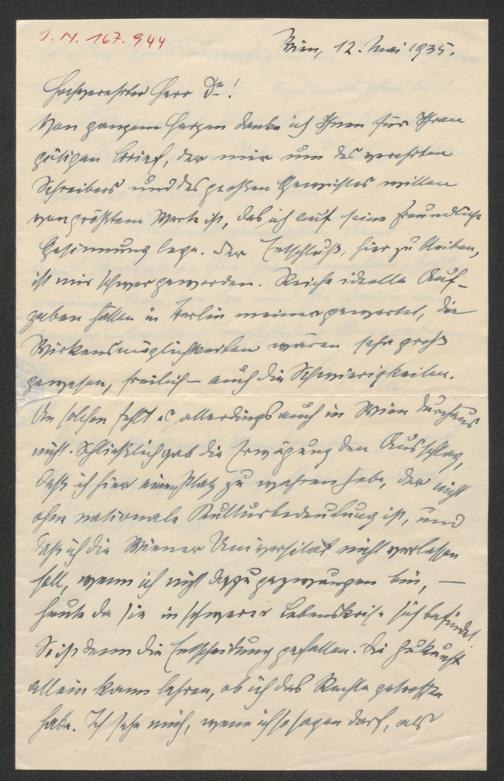 I. N. 167.944
Wien, 12. Mai 1935.
Hochverehrter Herr Dr.!
Von ganzem Herzen danke ich Ihnen für Ihren
gütigen Brief, der mir um des verehrten
Schreibers und des großen Gewichtes willen
von größtem Werte ist, das ich auf seine freundliche
Gesinnung lege. Der Entschluß, hier zu bleiben,
ist mir schwer geworden. Reiche ideelle Auf-
gaben hätten in Berlin meiner gewartet, die
Wirkensmöglichkeiten wären sehr groß
gewesen, freilich – auch die Schwierigkeiten.
An solchen fehlt es allerdings auch in Wien durchaus
nicht. Schließlich gab die Erwägung den Ausschlag,
daß ich hier einen Platz zu wahren habe, der nicht
ohne nationale Kulturbedeutung ist, und
daß ich die Wiener Universität nicht verlassen
soll, wenn ich nicht dazu gezwungen bin, –
heute da sie in schwerer Lebenskrise sich befindet.
So ist denn die Entscheidung gefallen. Die Zukunft
allein kann lehren, ob ich das Rechte getroffen
habe. Ich sehe mich, wenn ich so sagen darf, als